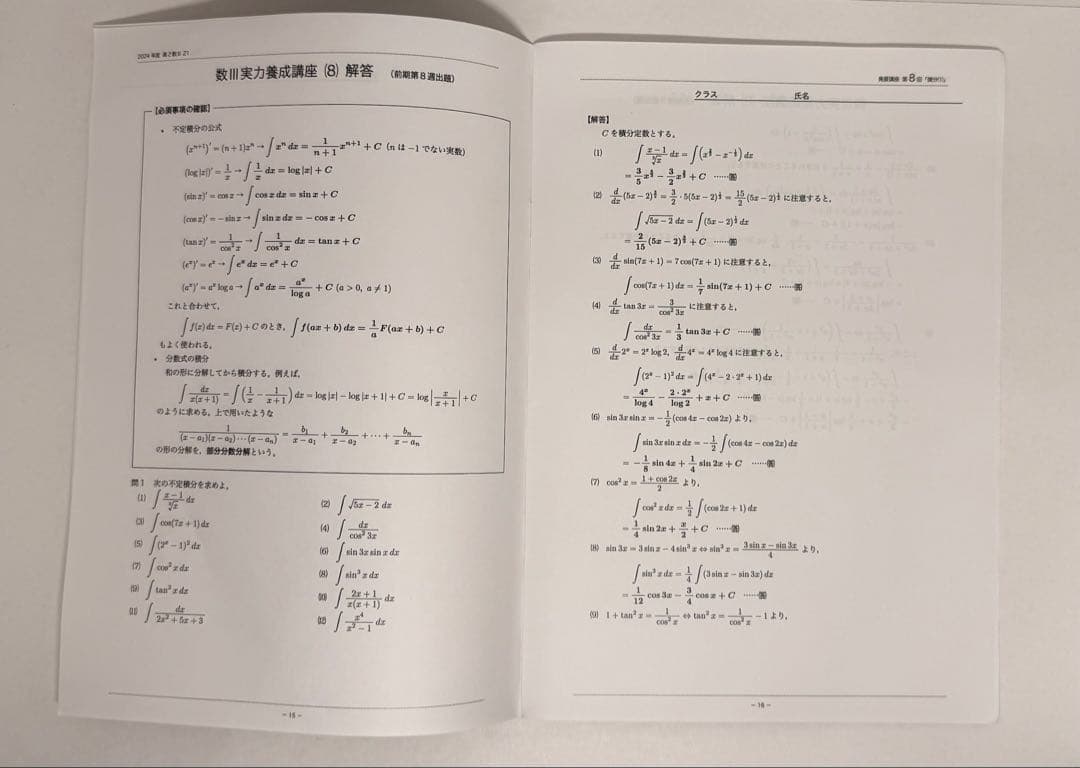 2024 年度 高2数S Z1
数Ⅲ実力養成講座 (8) 解答 (前期第8週出題)
【必須事項の確認】
• 不定積分の公式
(x^{n+1})' = (n+1)x^n → ∫ x^n dx = \frac{1}{n+1} x^{n+1} + C (n は −1 でない実数)
(log|x|)' = \frac{1}{x} → ∫ \frac{1}{x} dx = log|x| + C
(sin x)' = cos x → ∫ cos x dx = sin x + C
(cos x)' = −sin x → ∫ sin x dx = −cos x + C
(tan x)' = \frac{1}{cos² x} → ∫ \frac{1}{cos² x} dx = tan x + C
(e^x)' = e^x → ∫ e^x dx = e^x + C
(a^x)' = a^x log a → ∫ a^x dx = \frac{a^x}{log a} + C (a > 0, a ≠ 1)
これと合わせて,
∫ f(x) dx = F(x) + C のとき, ∫ f(ax + b) dx = \frac{1}{a} F(ax + b) + C
もよく使われる。
• 分数式の積分
和の形に分解してから積分する。例えば,
∫ \frac{dx}{x(x+1)} = ∫ (\frac{1}{x} − \frac{1}{x+1}) dx = log|x| − log|x+1| + C = log|\frac{x}{x+1}| + C
のように求める。上で用いたような
\frac{1}{(x−a_1)(x−a_2)⋯(x−a_n)} = \frac{b_1}{x−a_1} + \frac{b_2}{x−a_2} + ⋯ + \frac{b_n}{x−a_n}
の形の分解を, 部分分数分解という。
問1 次の不定積分を求めよ。
(1) ∫ \frac{x−1}{\sqrt[3]{x}} dx (2) ∫ \sqrt{5x−2} dx
(3) ∫ cos(7x+1) dx (4) ∫ \frac{dx}{cos² 3x}
(5) ∫ (2^x − 1)² dx (6) ∫ sin 3x sin x dx
(7) ∫ cos² x dx (8) ∫ sin³ x dx
(9) ∫ tan² x dx (10) ∫ \frac{2x+1}{x(x+1)} dx
(11) ∫ \frac{dx}{2x²+5x+3} (12) ∫ \frac{x^4}{x²−1} dx
− 15 −
発展講座 第8回「積分(1)」
クラス 氏名
【解答】
C を積分定数とする。
(1) ∫ \frac{x−1}{\sqrt[3]{x}} dx = ∫ (x^{\frac{2}{3}} − x^{−\frac{1}{3}}) dx
= \frac{3}{5} x^{\frac{5}{3}} − \frac{3}{2} x^{\frac{2}{3}} + C ……㊟
(2) \frac{d}{dx}(5x−2)^{\frac{3}{2}} = \frac{3}{2}·5(5x−2)^{\frac{1}{2}} = \frac{15}{2}(5x−2)^{\frac{1}{2}} に注意すると,
∫ \sqrt{5x−2} dx = ∫ (5x−2)^{\frac{1}{2}} dx
= \frac{2}{15}(5x−2)^{\frac{3}{2}} + C ……
(3) \frac{d}{dx} sin(7x+1) = 7cos(7x+1) に注意すると,
∫ cos(7x+1) dx = \frac{1}{7} sin(7x+1) + C ……
(4) \frac{d}{dx} tan 3x = \frac{3}{cos² 3x} に注意すると,
∫ \frac{dx}{cos² 3x} = \frac{1}{3} tan 3x + C ……
(5) \frac{d}{dx} 2^x = 2^x log 2, \frac{d}{dx} 4^x = 4^x log 4 に注意すると,
∫ (2^x − 1)² dx = ∫ (4^x − 2·2^x + 1) dx
= \frac{4^x}{log 4} − \frac{2·2^x}{log 2} + x + C ……
(6) sin 3x sin x = −\frac{1}{2}(cos 4x − cos 2x) より,
∫ sin 3x sin x dx = −\frac{1}{2} ∫ (cos 4x − cos 2x) dx
= −\frac{1}{8} sin 4x + \frac{1}{4} sin 2x + C ……
(7) cos² x = \frac{1+cos 2x}{2} より,
∫ cos² x dx = \frac{1}{2} ∫ (cos 2x + 1) dx
= \frac{1}{4} sin 2x + \frac{x}{2} + C ……
(8) sin 3x = 3 sin x − 4 sin³ x ⇔ sin³ x = \frac{3 sin x − sin 3x}{4} より,
∫ sin³ x dx = \frac{1}{4} ∫ (3 sin x − sin 3x) dx
= \frac{1}{12} cos 3x − \frac{3}{4} cos x + C ……
(9) 1 + tan² x = \frac{1}{cos² x} ⇔ tan² x = \frac{1}{cos² x} − 1 より,
− 16 −